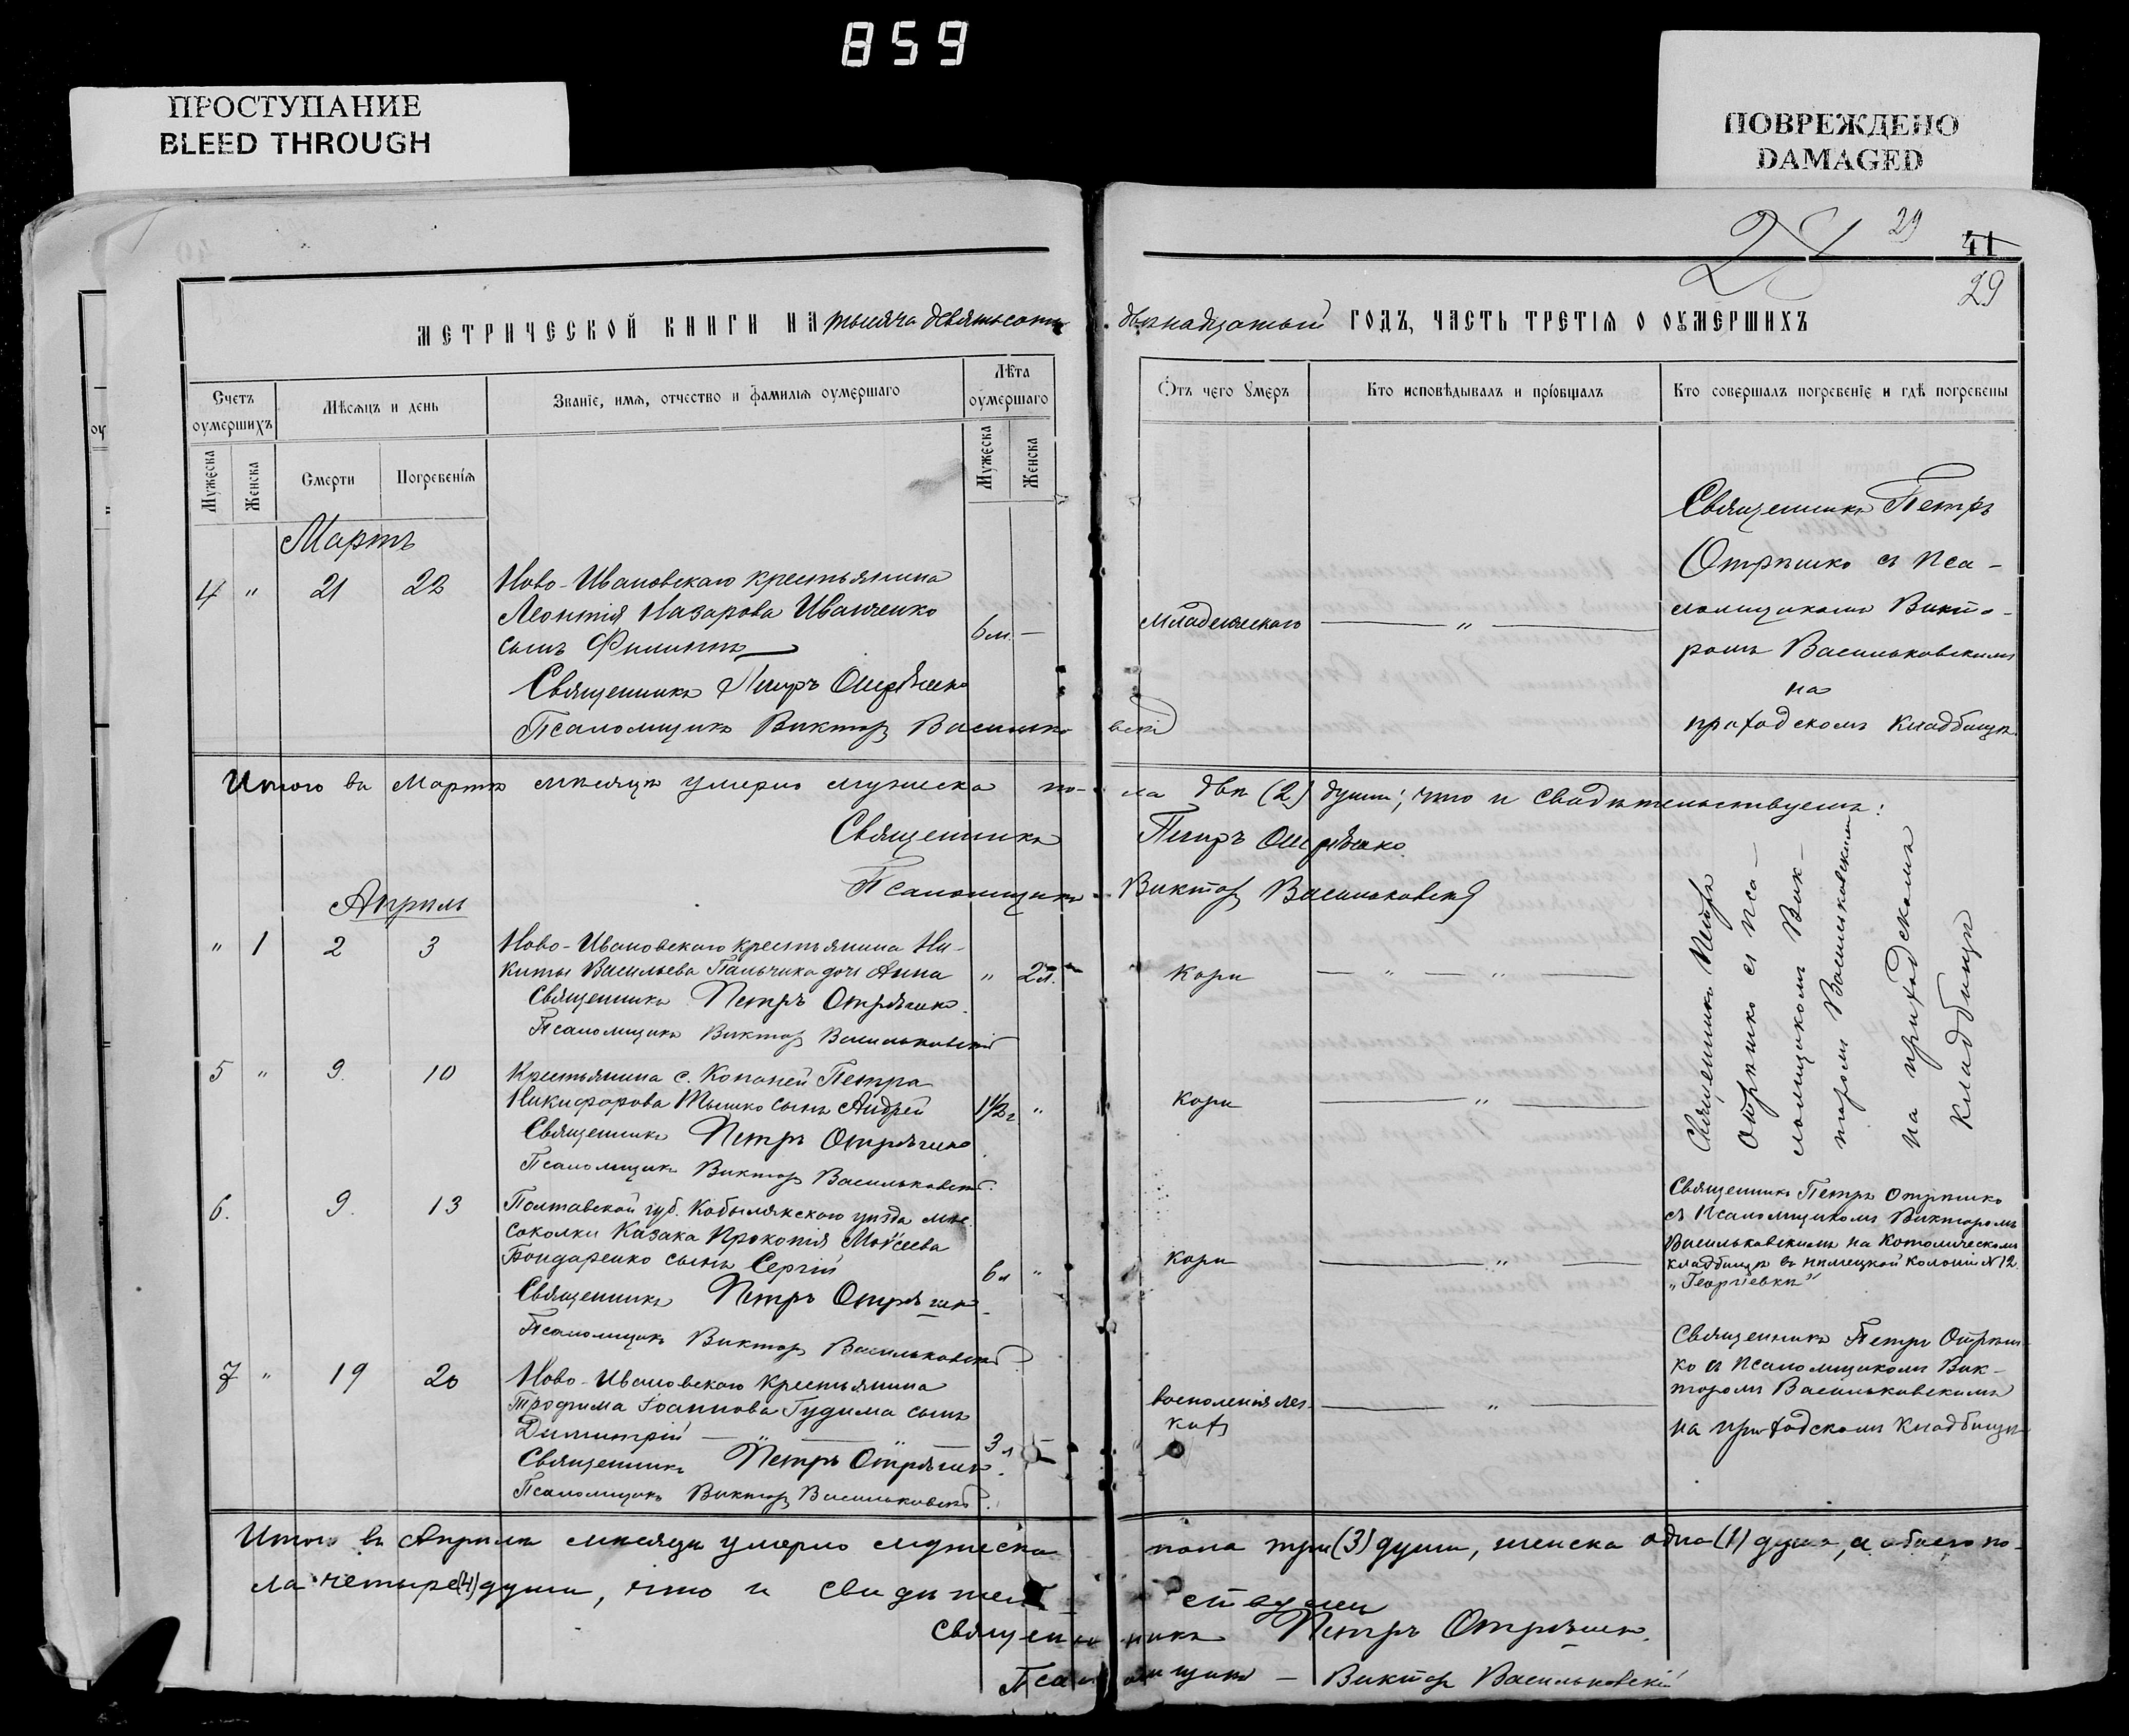 859
ПРОСТУПАНИЕ
BLEED THROUGH
ПОВРЕЖДЕНО
DAMAGED
28 29 41
29
МЕТРИЧЕСКОЙ КНИГИ НА тысяча девятьсотъ двѣнадцатый ГОДЪ, ЧАСТЬ ТРЕТІЯ О ОУМЕРШИХЪ
Счетъ оумершихъ
Мѣсяцъ и день
Званіе, имя, отчество и фамилія оумершаго
Лѣта оумершаго
Отъ чего умеръ
Кто исповѣдывалъ и пріобщалъ
Кто совершалъ погребеніе и гдѣ погребены
Мужеска
Женска
Смерти
Погребенія
Мужеска
Женска
Мартъ
4 " 21 22
Ново-Ивановскаго крестьянина
Леонтія Назарова Иванченко
сынъ Филиппъ
6 м. —
Священникъ Петръ Отрѣшко
Псаломщикъ Викторъ Васильковскій
Младенческаго — " —
Священникъ Петръ
Отрѣшко съ пса-
ломщикомъ Викто-
ромъ Васильковскимъ
на
приходскомъ кладбищѣ
Итого въ Мартѣ мѣсяцѣ умерло мужеска по- ла двѣ (2) души; что и свидѣтельствуемъ:
Священникъ Петръ Отрѣшко.
Псаломщикъ Викторъ Васильковскій
Апрѣль
" 1 2 3
Ново-Ивановскаго крестьянина Ни-
киты Васильева Пальчика дочь Анна
" 2 л.
Священникъ Петръ Отрѣшко.
Псаломщикъ Викторъ Васильковскій
Кори — " — " —
Священникъ Петръ
Отрѣшко съ пса-
ломщикомъ Вик-
торомъ Васильковскимъ
на приходскомъ
кладбищѣ
5 " 9. 10
Крестьянина с. Копаней Петра
Никифорова Мышко сынъ Андрей
1½ г "
Священникъ Петръ Отрѣшко.
Псаломщикъ Викторъ Васильковскій.
Кори — " —
6. 9. 13
Полтавской губ. Кобылякскаго уѣзда мѣс.
Соколки Казака Прокопія Моѵсеева
Бондаренко сынъ Сергій
6 л "
Священникъ Петръ Отрѣшко
Псаломщикъ Викторъ Васильковскій.
Кори — " —
Священникъ Петръ Отрѣшко
съ Псаломщикомъ Викторомъ
Васильковскимъ на Католическомъ
кладбищѣ въ нѣмецкой колоніи № 12.
„Георгіевкѣ"
7 " 19 20
Ново-Ивановскаго крестьянина
Трофима Іоаннова Гудима сынъ
Димитрій — " — " —
3 л —
Священникъ Петръ Отрѣшко.
Псаломщикъ Викторъ Васильковскій.
воспаленія лег-
кихъ
— " —
Священникъ Петръ Отрѣш-
ко съ Псаломщикомъ Вик-
торомъ Васильковскимъ
на приходскомъ кладбищѣ
Итого въ Апрѣлѣ мѣсяцѣ умерло мужеска пола три (3) души, женска одна (1) душа, а обоего по-
ла четыре (4) души, что и свидѣтельствуемъ
Священникъ Петръ Отрѣшко.
Псаломщикъ — Викторъ Васильковскій